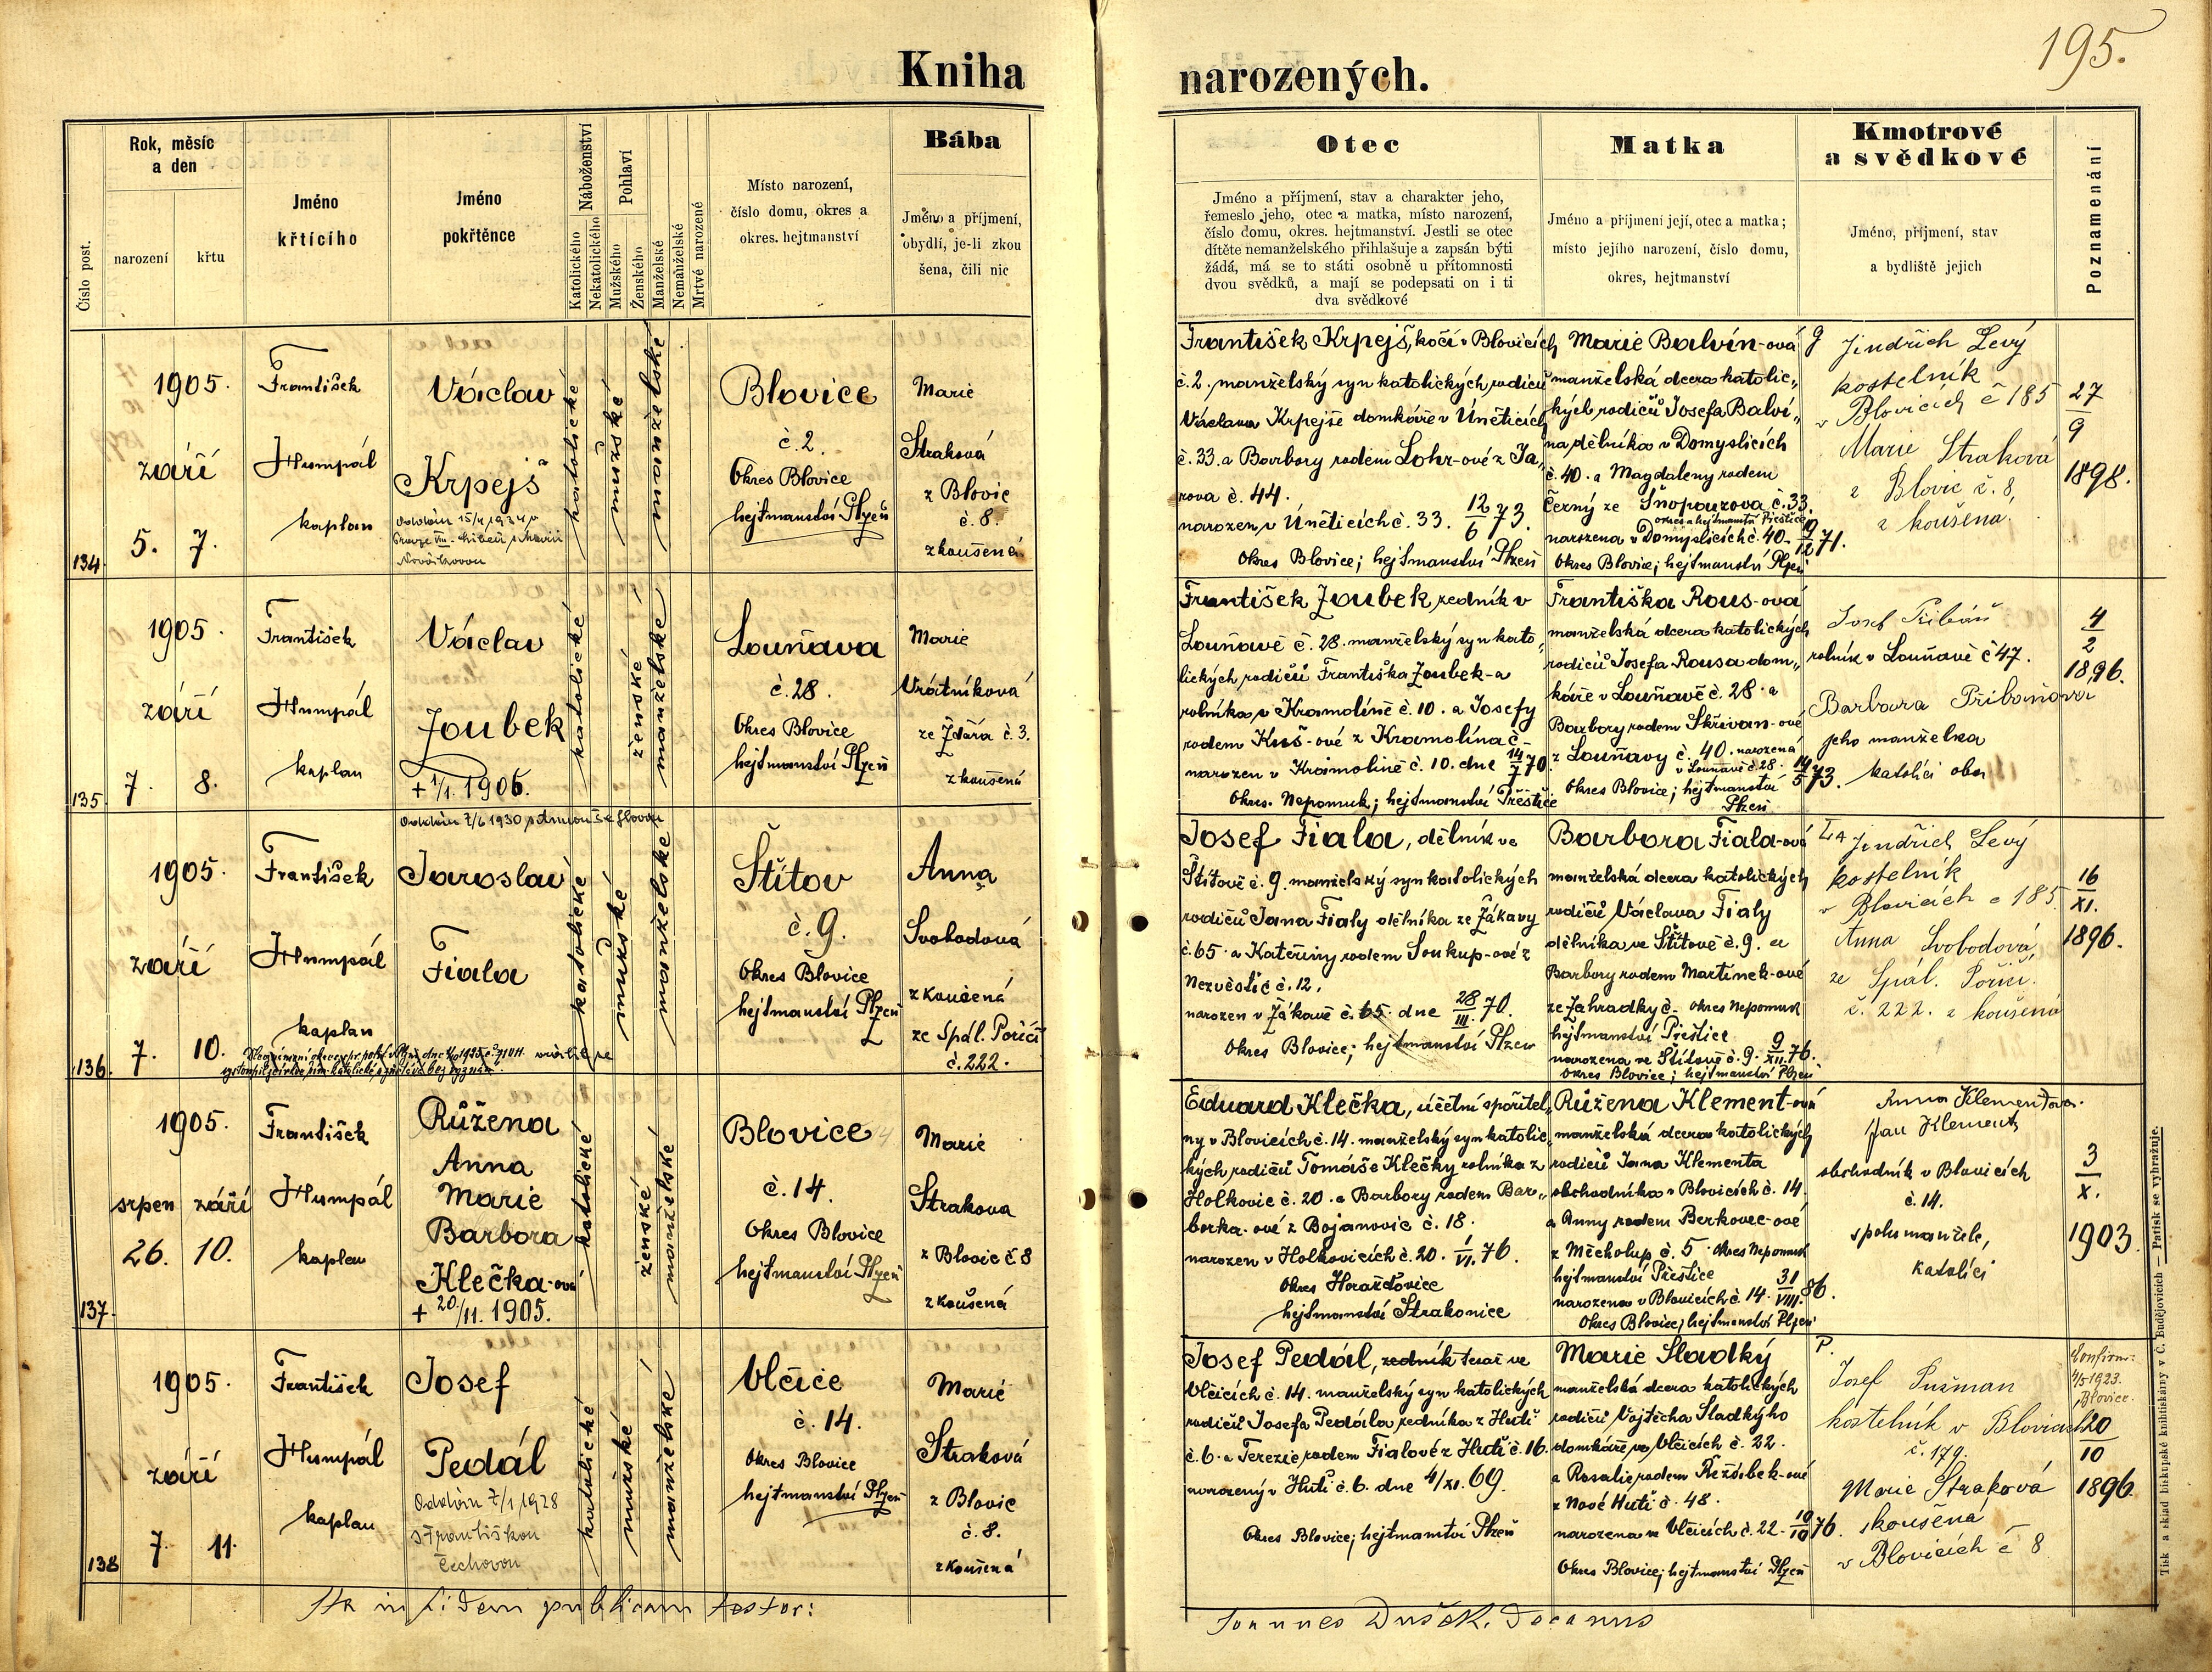 195.
Kniha narozených.
Číslo post.
Rok, měsíc a den
narození
křtu
Jméno křtícího
Jméno pokřtěnce
Náboženství
Katolického
Nekatolického
Pohlaví
Mužského
Ženského
Manželské
Nemanželské
Mrtvé narozené
Místo narození,
číslo domu, okres a
okres. hejtmanství
Bába
Jméno a příjmení,
obydlí, je-li zkou
šena, čili nic
Otec
Jméno a příjmení, stav a charakter jeho,
řemeslo jeho, otec a matka, místo narození,
číslo domu, okres. hejtmanství. Jestli se otec
dítěte nemanželského přihlašuje a zapsán býti
žádá, má se to státi osobně u přítomnosti
dvou svědků, a mají se podepsati on i ti
dva svědkové
Matka
Jméno a příjmení její, otec a matka;
místo jejího narození, číslo domu,
okres, hejtmanství
Kmotrové
a svědkové
Jméno, příjmení, stav
a bydliště jejich
Poznamenání
134
1905.
září
5. 7.
František
Humpál
kaplan
Václav
Krpejš
katolické
mužské
manželské
Blovice
č. 2.
Okres Blovice
hejtmanství Plzeň
Marie
Straková
z Blovic
č. 8.
zkoušená
František Krpejš, kočí v Blovicích
č. 2. manželský syn katolických rodičů
Václava Krpejše domkáře v Úněticích
č. 33. a Barbory rodem Lohr-ové z Ja„
rova č. 44.
narozen v Úněticích č. 33. 12/6 73.
Okres Blovice; hejtmanství Plzeň
Marie Balvín-ová
manželská dcera katolic„
kých rodičů Josefa Balví„
na dělníka v Domyslicích
č. 40. a Magdaleny rodem
Černý ze Šnopouzova č. 33.
okres a hejtmanství Přeštice
narozena v Domyslicích č. 40. 19/12 71.
Okres Blovice; hejtmanství Plzeň
Jindřich Levý
kostelník
v Blovicích č 185
Marie Straková
z Blovic č. 8,
zkoušena.
27/9
1898.
135
1905.
září
7. 8.
František
Humpál
kaplan
Václav
Joubek
+ 1/1 1906.
katolické
ženské
manželské
Louňava
č. 28.
Okres Blovice
hejtmanství Plzeň
Marie
Vrátníková
ze Ždára č. 3.
zkoušená
František Joubek, zedník v
Louňavě č. 28. manželský syn kato„
lických rodičů Františka Joubek-a
rolníka v Kramolíně č. 10. a Josefy
rodem Kuš-ové z Kramolína č-
narozen v Kramolíně č. 10. dne 14/7 70.
Okres. Nepomuk; hejtmanství Přeštice
Františka Rous-ová
manželská dcera katolických
rodičů Josefa Rousa dom„
káře v Louňavě č. 28. a
Barbory rodem Skřivan-ové
z Louňavy č. 40. narozená
v Louňavě č. 28. 14/5 73.
Okres Blovice; hejtmanství
Plzeň
Josef Přibáň
rolník v Louňavě č 47.
Barbara Přibáňova
jeho manželka
katolíci oba
4/2
1896.
136.
1905.
září
7. 10.
František
Humpál
kaplan
Jaroslav
Fiala
katolické
mužské
manželské
Štítov
č. 9.
Okres Blovice
hejtmanství Plzeň
Anna
Svobodová
zkoušená
ze Spál. Poříčí
č. 222.
Josef Fiala, dělník ve
Štítově č. 9. manželský syn katolických
rodičů Jana Fialy dělníka ze Žákavy
č. 65. a Kateřiny rodem Soukup-ové z
Nezvěstic č. 12.
narozen v Žákavě č. 65. dne 28/III. 70.
Okres Blovice; hejtmanství Plzeň
Barbora Fiala-ová
manželská dcera katolických
rodičů Václava Fialy
dělníka ve Štítově č. 9. a
Barbory rodem Martínek-ové
ze Zahradky č- okres Nepomuk
hejtmanství Přeštice
narozena ve Štítově č. 9. 9/XII. 76.
Okres Blovice; hejtmanství Plzeň
Jindřich Levý
kostelník
v Blovicích č 185.
Anna Svobodová
ze Spál. Poříčí.
č. 222. zkoušená
16/XI.
1896.
137.
1905.
srpen září
26. 10.
František
Humpál
kaplan
Růžena
Anna
Marie
Barbora
Klečka-ová
+ 20/11. 1905.
katolické
ženské
manželské
Blovice
č. 14.
Okres Blovice
hejtmanství Plzeň
Marie
Strakova
z Blovic č. 8
zkoušená
Eduard Klečka, účetní spořitel„
ny v Blovicích č. 14. manželský syn katolic„
kých rodičů Tomáše Klečky rolníka z
Holkovic č. 20. a Barbory rodem Bar„
borka-ové z Bojanovic č. 18.
narozen v Holkovicích č. 20. 1/VI. 76.
Okres Horažďovice
hejtmanství Strakonice
Růžena Klement-ová
manželská dcera katolických
rodičů Jana Klementa
obchodníka v Blovicích č. 14.
a Anny rodem Berkovec-ové
z Měcholup č. 5. okres Nepomuk
hejtmanství Přeštice
narozena v Blovicích č. 14. 31/VIII. 86.
Okres Blovice; hejtmanství Plzeň
Anna Klementova.
Jan Klement
obchodník v Blovicích
č. 14.
spolu manželé,
katolíci
3/X.
1903.
138
1905.
září
7. 11.
František
Humpál
kaplan
Josef
Pedál
Oddán 7/1 1928
s Františkou
Čechovou
katolické
mužské
manželské
Vlčice
č. 14.
Okres Blovice
hejtmanství Plzeň
Marie
Straková
z Blovic
č. 8.
zkoušená
Josef Pedál, zedník tesař ve
Vlčicích č. 14. manželský syn katolických
rodičů Josefa Pedála zedníka z Hutí
č. 6. a Terezie rodem Fialové z Hutí č. 16.
narozený v Huti č. 6. dne 4/XI. 69.
Okres Blovice; hejtmanství Plzeň
Marie Sladký
manželská dcera katolických
rodičů Vojtěcha Sladkýho
domkáře ve Vlčicích č. 22.
a Rosalie rodem Řežábek-ové
z Nové Huti č. 48.
narozena ve Vlčicích č. 22. 10/10 76.
Okres Blovice; hejtmanství Plzeň
P.
Josef Pušman
kostelník v Blovicích
č. 179.
Marie Straková
zkoušená
v Blovicích č 8
Konfirm:
4/5 1923.
Blovice.
20/10
1896.
Ita in fidem publicam testor:
Joannes Dušek. Decanus
Tisk a sklad biskupské knihtiskárny v Č. Budějovicích — Patisk se vyhražuje.